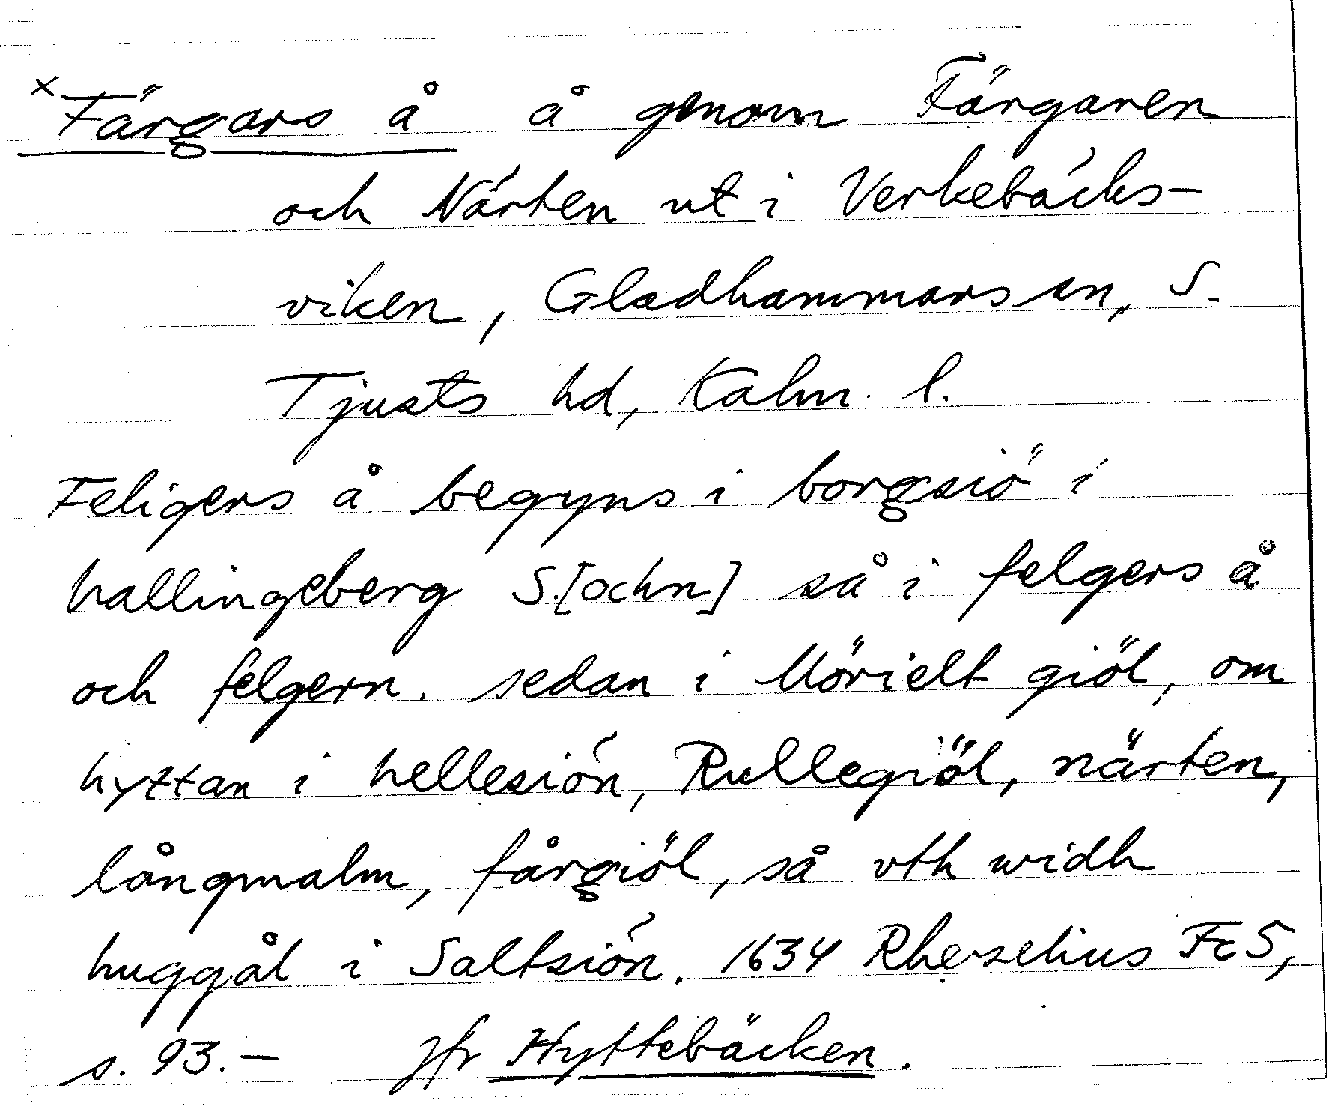 × Färgars å å genom Färgaren
och Närten ut i Verkebäcks-
viken, Gladhammars sn, S.
Tjusts hd, Kalm. l.
Feligers å begyns i borgsiö i
hallingeberg S.[ochn] så i felgers å
och felgern. sedan i Mörielt giöl, om
hyttan i hellesión, Rullegiöl, närten,
långmalm, fårgiöl, så vth widh
huggål i Saltsión. 1634 Rhezelius Fc5,
s. 93.— Jfr Hyttebäcken.